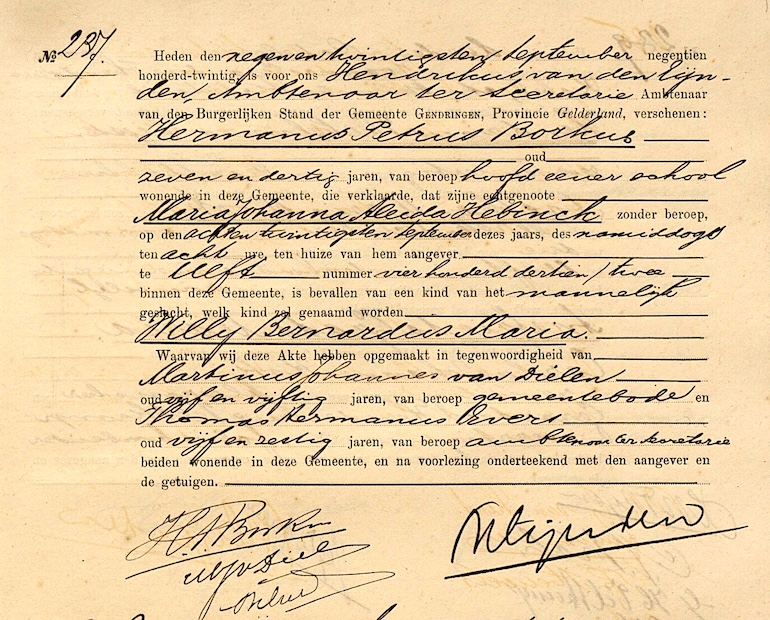 No 237.
Heden den negen en twintigsten September negentien
honderd-twintig, is voor ons Hendrikus van den Eijn-
den, Ambtenaar ter Secretarie Ambtenaar
van den Burgerlijken Stand der Gemeente GENDRINGEN, Provincie Gelderland, verschenen:
Hermanus Petrus Borkus
oud
zeven en dertig jaren, van beroep hoofd eener school
wonende in deze Gemeente, die verklaarde, dat zijne echtgenoote
Maria Johanna Aleida Hebinck zonder beroep,
op den acht en twintigsten September dezes jaars, des namiddags
ten acht ure, ten huize van hem aangever
te Ulft nummer vier honderd dertien / twee
binnen deze Gemeente, is bevallen van een kind van het mannelijk
geslacht, welk kind zal genaamd worden
Willy Bernardus Maria.
Waarvan wij deze Akte hebben opgemaakt in tegenwoordigheid van
Martinus Johannes van Dielen
oud vijf en vijftig jaren, van beroep gemeentebode en
Thomas Hermanus Evers
oud vijf en zestig jaren, van beroep ambtenaar ter secretarie
beiden wonende in deze Gemeente, en na voorlezing onderteekend met den aangever en
de getuigen.
H.P. Borkus